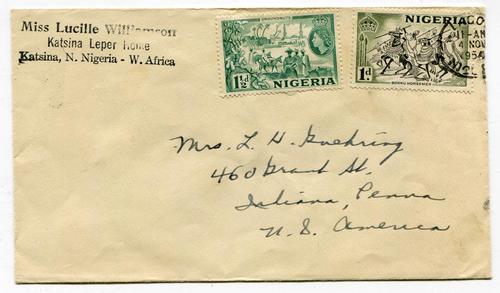 Miss Lucille Williamson
Katsina Leper Home
Katsina, N. Nigeria - W. Africa
1½d
NIGERIA
NIGERIA
1d
BORNU HORSEMEN
4 NOV
1954
Mrs. L. H. Guehring
460 Grant St.
Indiana, Penna
U. S. America